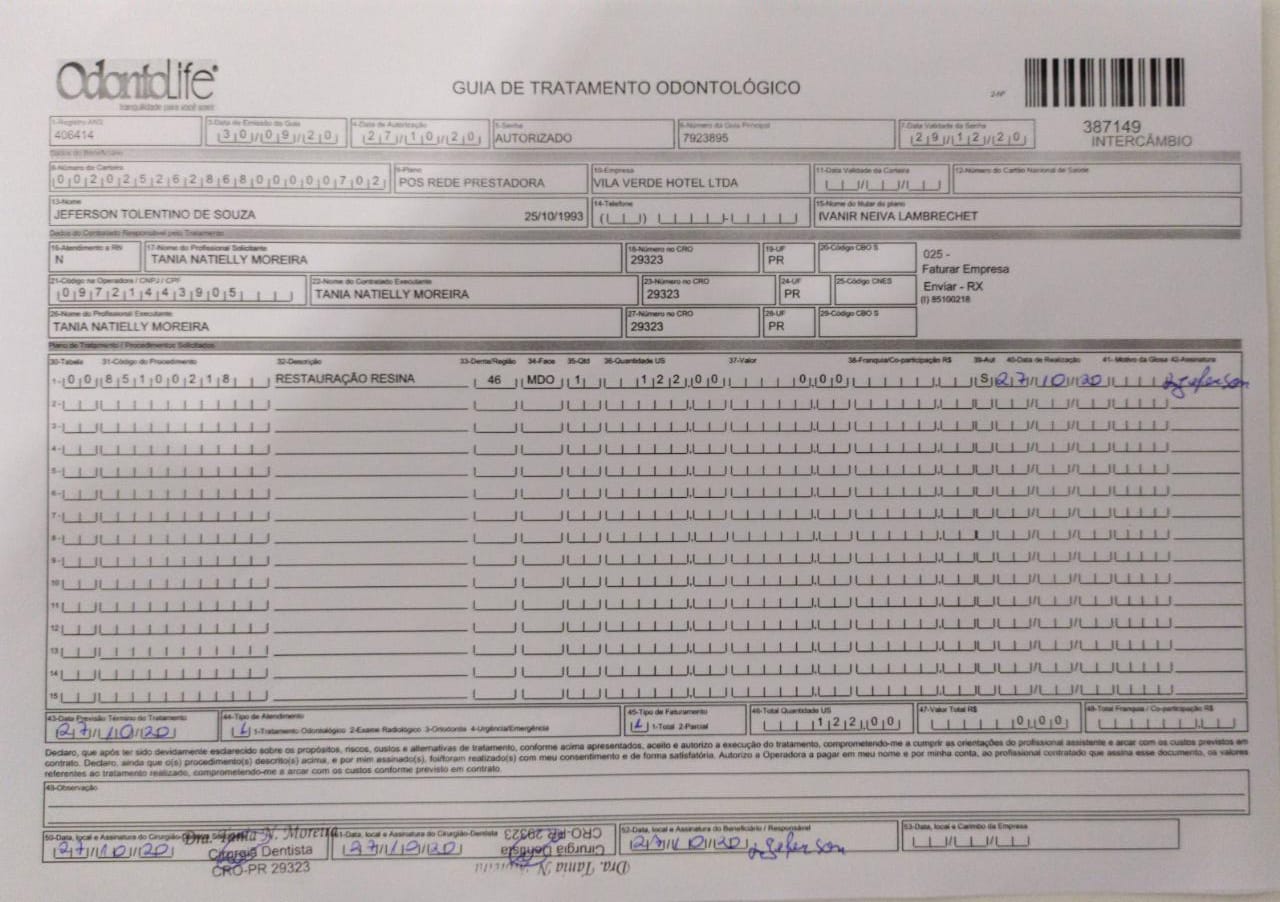 OdontoLife
tranquilidade para você sorrir
GUIA DE TRATAMENTO ODONTOLÓGICO
2-Nº
387149
INTERCÂMBIO
1-Registro ANS
406414
3-Data de Emissão da Guia
30/09/20
4-Data de Autorização
27/10/20
5-Senha
AUTORIZADO
6-Número da Guia Principal
7923895
7-Data Validade da Senha
29/12/20
Dados do Beneficiário
8-Número da Carteira
00202526286800000702
9-Plano
POS REDE PRESTADORA
10-Empresa
VILA VERDE HOTEL LTDA
11-Data Validade da Carteira
12-Número do Cartão Nacional de Saúde
13-Nome
JEFERSON TOLENTINO DE SOUZA 25/10/1993
14-Telefone
15-Nome do titular do plano
IVANIR NEIVA LAMBRECHET
Dados do Contratado Responsável pelo Tratamento
16-Atendimento a RN
N
17-Nome do Profissional Solicitante
TANIA NATIELLY MOREIRA
18-Número no CRO
29323
19-UF
PR
20-Código CBO S
025 -
Faturar Empresa
Enviar - RX
(I) 85100218
21-Código na Operadora / CNPJ / CPF
09721443905
22-Nome do Contratado Executante
TANIA NATIELLY MOREIRA
23-Número no CRO
29323
24-UF
PR
25-Código CNES
26-Nome do Profissional Executante
TANIA NATIELLY MOREIRA
27-Número no CRO
29323
28-UF
PR
29-Código CBO S
Plano de Tratamento / Procedimentos Solicitados
30-Tabela 31-Código do Procedimento 32-Descrição 33-Dente/Região 34-Face 35-Qtd 36-Quantidade US 37-Valor 38-Franquia/Co-participação R$ 39-Aut 40-Data de Realização 41- Motivo da Glosa 42-Assinatura
1- 00 85100218 RESTAURAÇÃO RESINA 46 MDO 1 122,00 0,00 S 27/10/20 Jeferson
2-
3-
4-
5-
6-
7-
8-
9-
10
11
12
13
14
15
43-Data Previsão Término do Tratamento
27/10/20
44-Tipo de Atendimento
1 1-Tratamento Odontológico 2-Exame Radiológico 3-Ortodontia 4-Urgência/Emergência
45-Tipo de Faturamento
1 1-Total 2-Parcial
46-Total Quantidade US
122,00
47-Valor Total R$
0,00
48-Total Franquia / Co-participação R$
Declaro, que após ter sido devidamente esclarecido sobre os propósitos, riscos, custos e alternativas de tratamento, conforme acima apresentados, aceito e autorizo a execução do tratamento, comprometendo-me a cumprir as orientações do profissional assistente e arcar com os custos previstos em
contrato. Declaro, ainda que o(s) procedimento(s) descrito(s) acima, e por mim assinado(s), foi/foram realizado(s) com meu consentimento e de forma satisfatória. Autorizo a Operadora a pagar em meu nome e por minha conta, ao profissional contratado que assina esse documento, os valores
referentes ao tratamento realizado, comprometendo-me a arcar com os custos conforme previsto em contrato.
49-Observação
50-Data, local e Assinatura do Cirurgião-Dentista
27/10/20
Dra. Tania N. Moreira
Cirurgiã Dentista
CRO-PR 29323
51-Data, local e Assinatura do Cirurgião-Dentista
27/10/20
Dra. Tania N.
Cirurgiã Dentista
CRO-PR 29323
52-Data, local e Assinatura do Beneficiário / Responsável
27/10/20 Jeferson
53-Data, local e Carimbo da Empresa